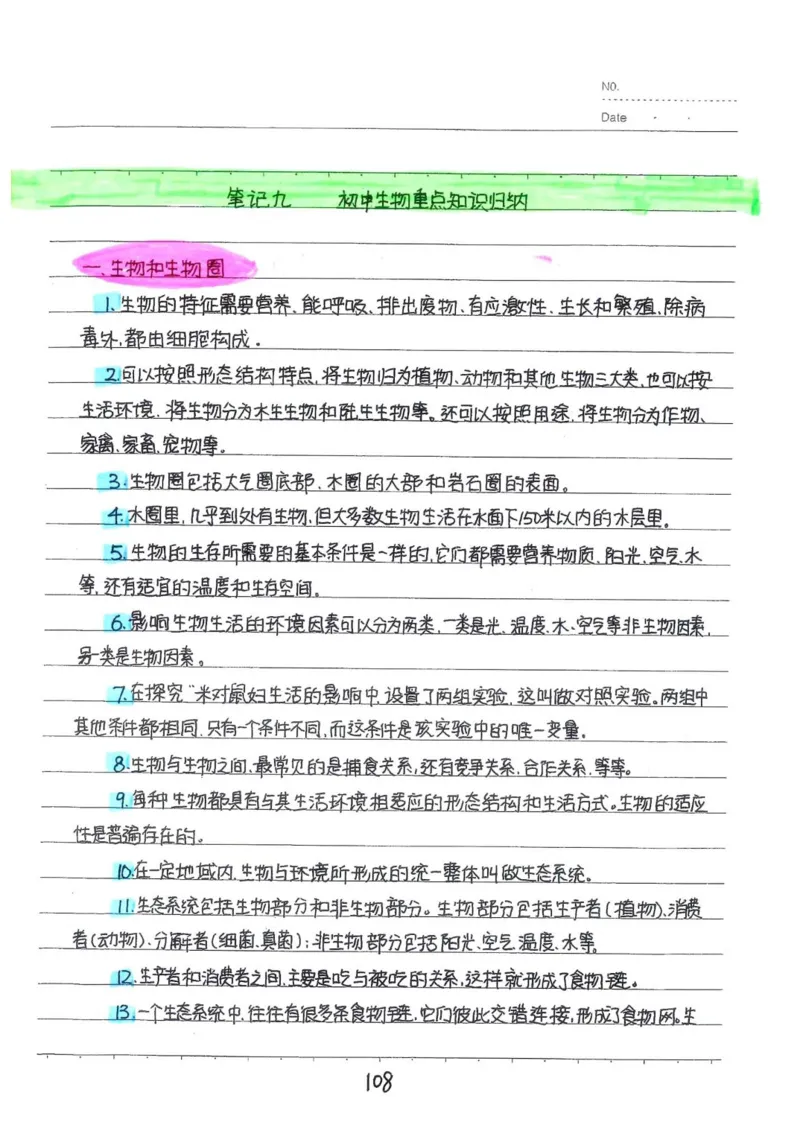 NO.
Date
笔记九 初中生物重点知识归纳
一、生物和生物圈
1.生物的特征需要营养、能呼吸、排出废物、有应激性、生长和繁殖、除病
毒外,都由细胞构成。
2.可以按照形态结构特点,将生物归为植物、动物和其他生物三大类,也可以按
生活环境,将生物分为水生生物和陆生生物等。还可以按照用途,将生物分为作物、
家禽、家畜、宠物等。
3.生物圈包括大气圈底部、水圈的大部和岩石圈的表面。
4.水圈里,几乎到处有生物,但大多数生物生活在水面下150米以内的水层里。
5.生物的生存所需要的基本条件是一样的,它们都需要营养物质、阳光、空气、水
等,还有适宜的温度和生存空间。
6.影响生物生活的环境因素可以分为两类,一类是光、温度、水、空气等非生物因素,
另一类是生物因素。
7.在探究"米对鼠妇生活的影响中,设置了两组实验,这叫做对照实验。两组中
其他条件都相同,只有一个条件不同,而这条件是该实验中的唯一变量。
8.生物与生物之间,最常见的是捕食关系,还有竞争关系、合作关系,等等。
9.每种生物都具有与其生活环境相适应的形态结构和生活方式。生物的适应
性是普遍存在的。
10.在一定地域内,生物与环境所形成的统一整体叫做生态系统。
11.生态系统包括生物部分和非生物部分。生物部分包括生产者(植物)、消费
者(动物)、分解者(细菌、真菌);非生物部分包括阳光、空气、温度、水等。
12.生产者和消费者之间,主要是吃与被吃的关系,这样就形成了食物链。
13.一个生态系统中,往往有很多条食物链,它们彼此交错连接,形成了食物网。生
108